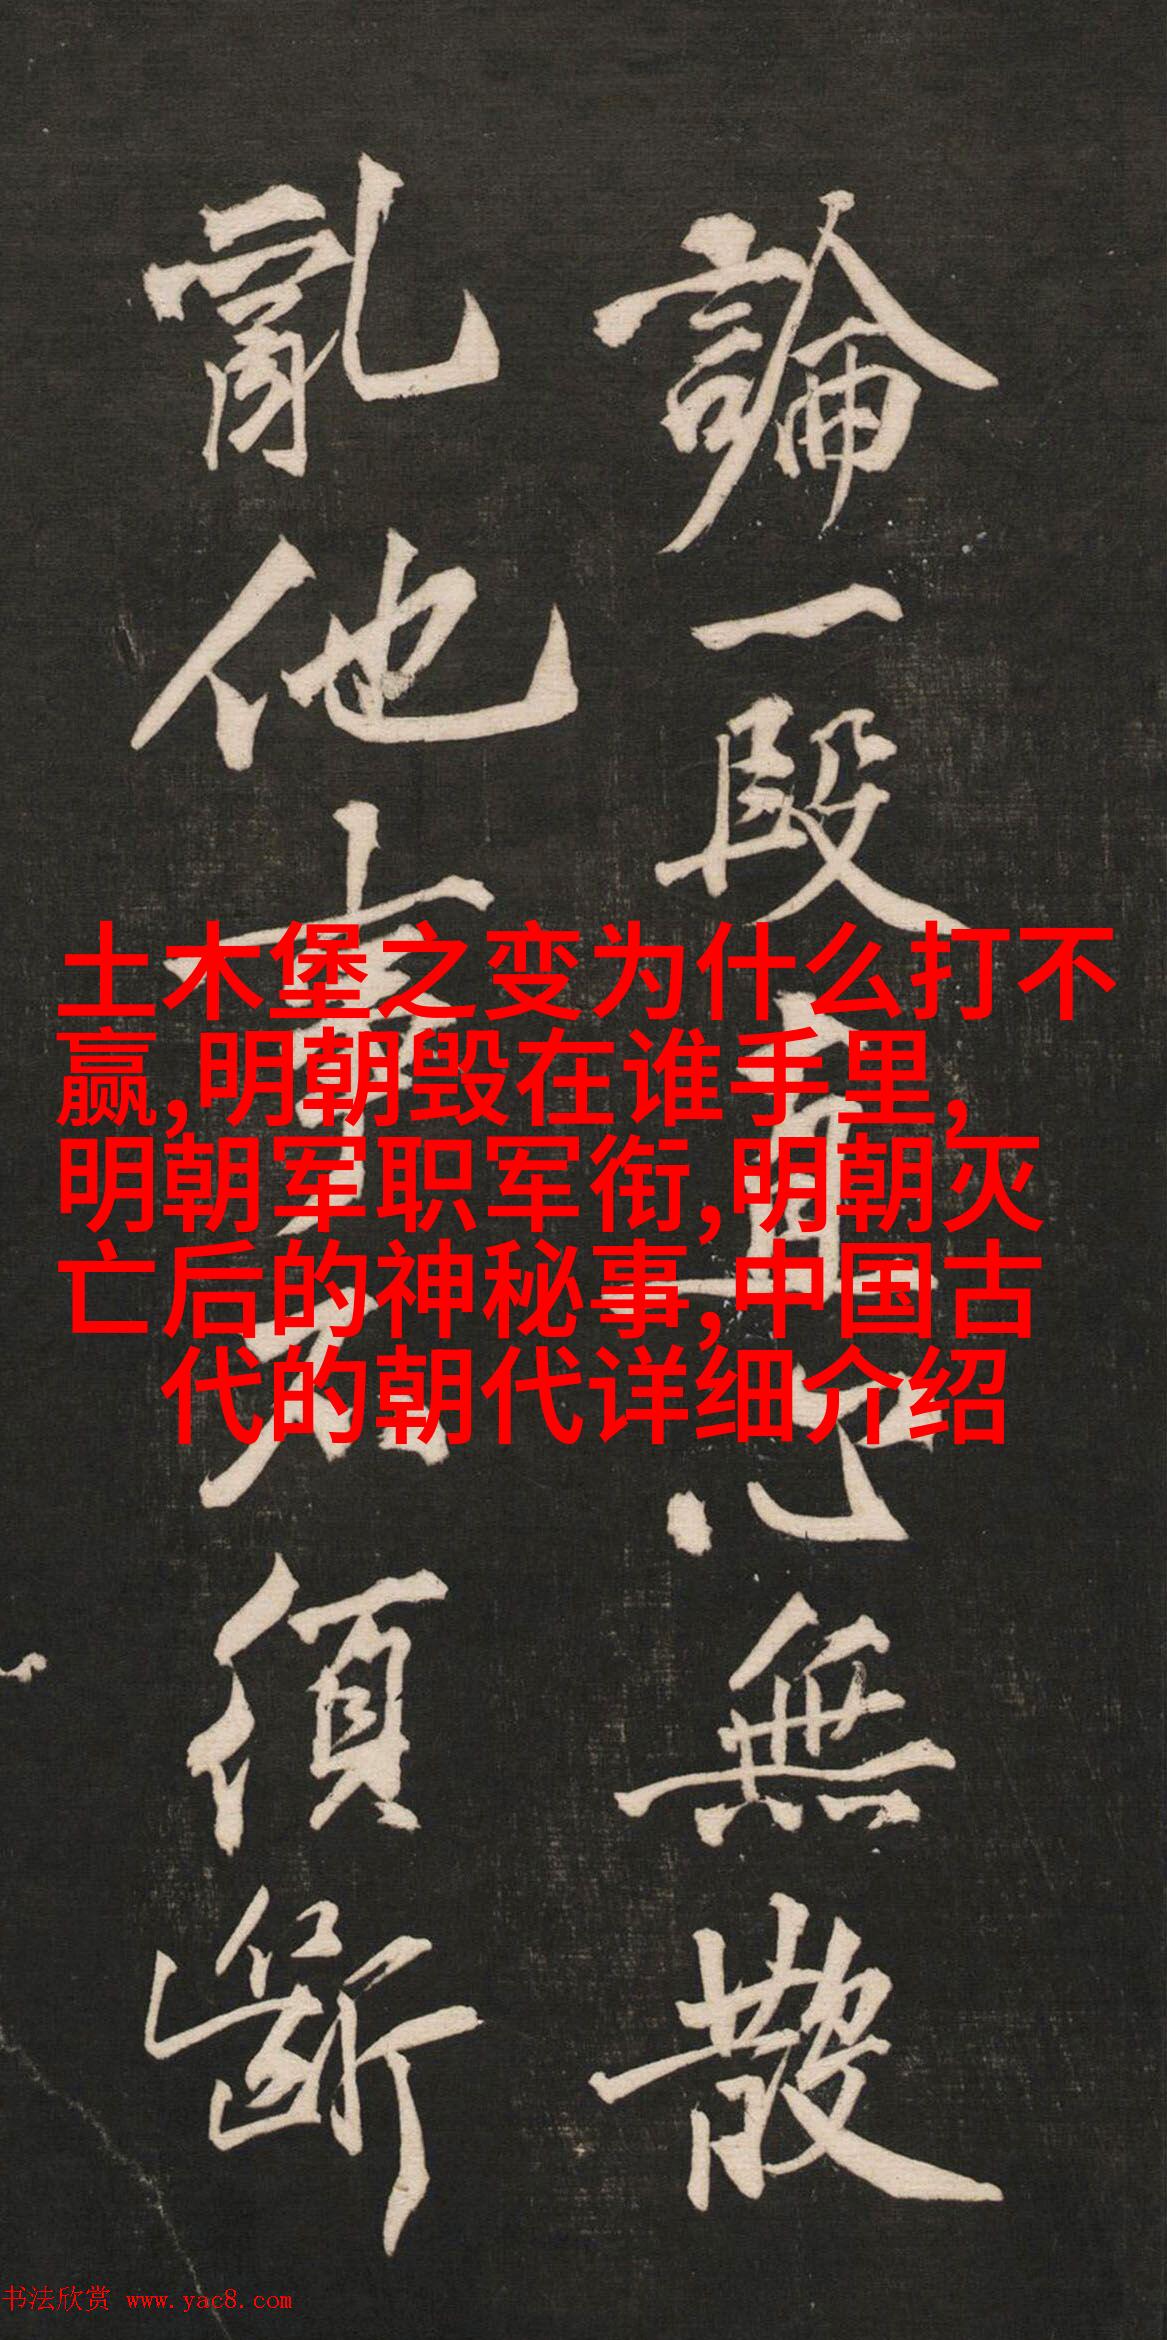 論一段直心無散
亂他事不須斷
土木堡之变为什么打不
赢,明朝毁在谁手里,
明朝军职军衔,明朝灭
亡后的神秘事,中国古
代的朝代详细介绍
书法欣赏 www.yac8.com